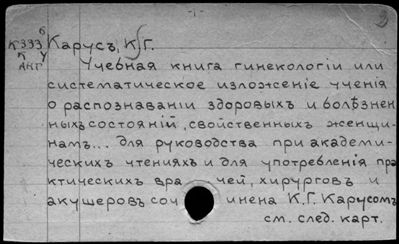 -1-
3
К333 Карусъ, К. Г.
К у
АКГ Учебная книга гинекологіи или
систематическое изложеніе ученія
о распознаваніи здоровыхъ и болѣзнен
ныхъ состояній, свойственныхъ женщи-
намъ... для руководства при академи-
ческихъ чтеніяхъ и для употребленія пра
ктическихъ вра чей, хирурговъ и
акушеровъ соч инена К. Г. Карусомъ
см. след. карт.